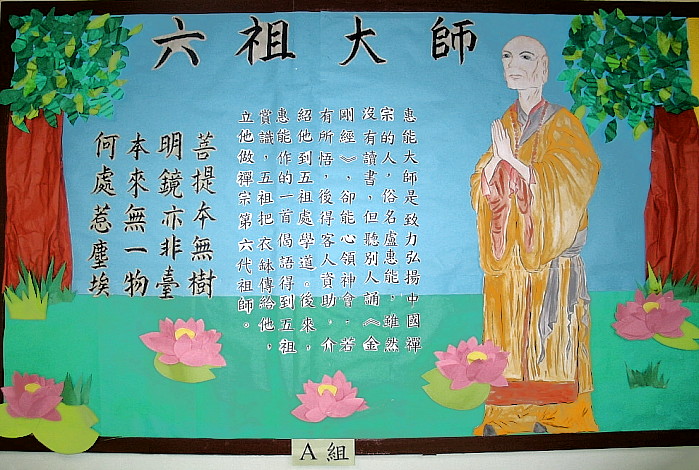 六祖大師
惠能大師是致力弘揚中國禪
宗的人，俗名盧惠能，雖然
沒有讀書，但聽別人誦《金
剛經》，卻能心領神會，若
有所悟，後得客人資助，介
紹他到五祖處學道。後來，
惠能作的一首偈語得到五祖
賞識，五祖把衣鉢傳給他，
立他做禪宗第六代祖師。
菩提本無樹
明鏡亦非臺
本來無一物
何處惹塵埃
A 組